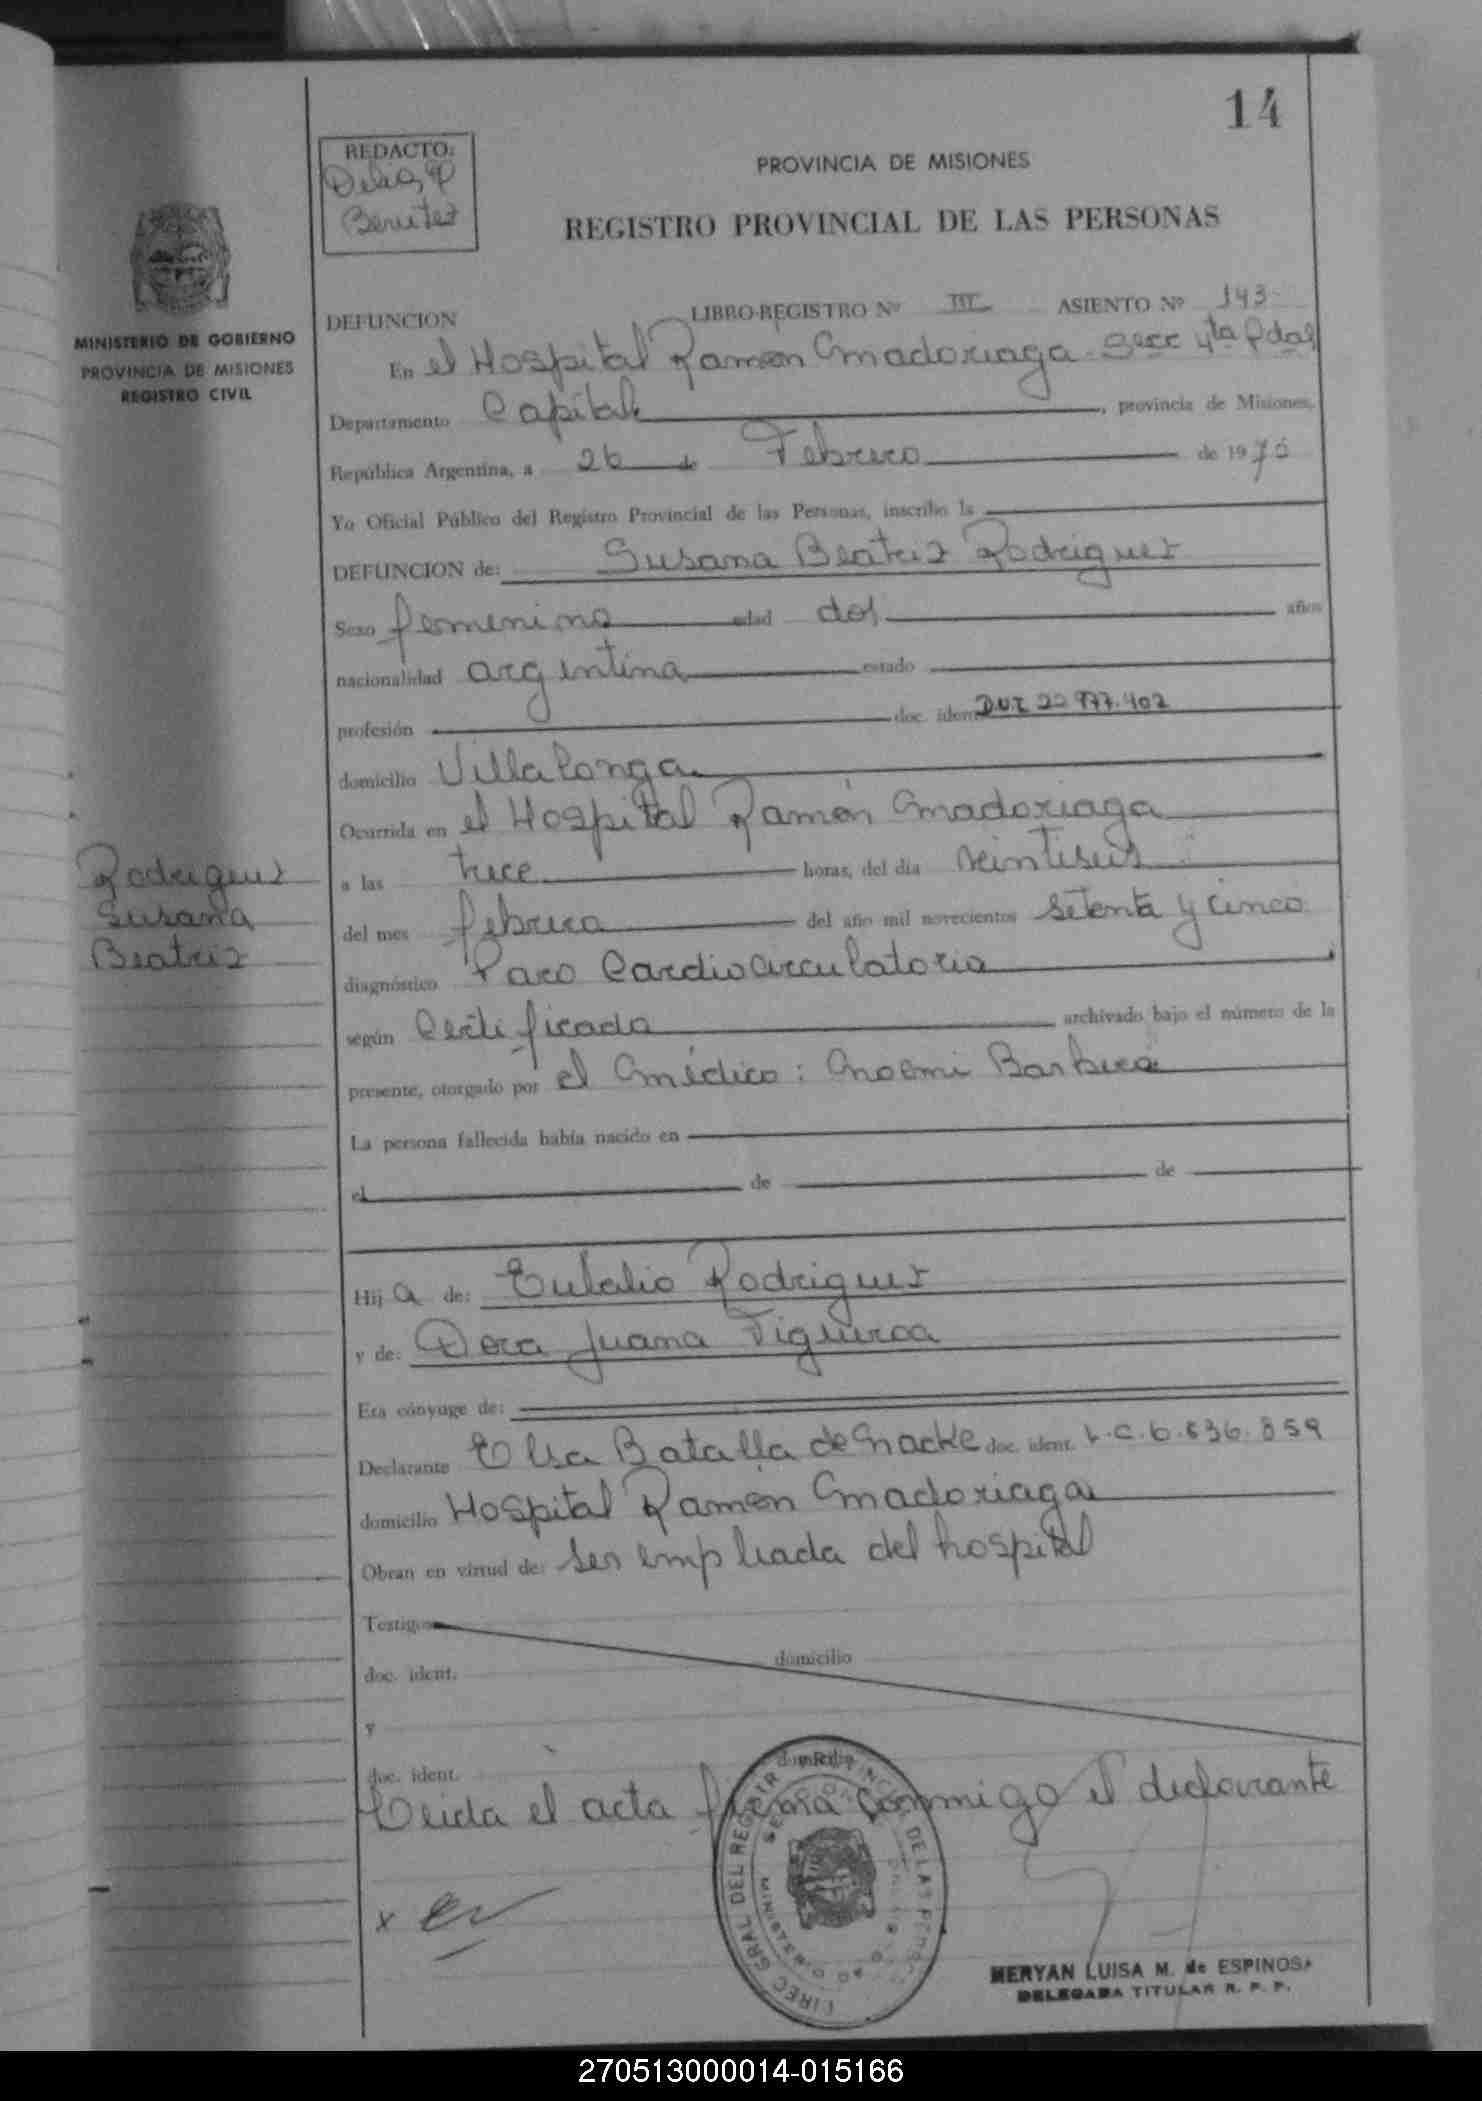 14
REDACTO:
Delia P
Benitez
PROVINCIA DE MISIONES
REGISTRO PROVINCIAL DE LAS PERSONAS
MINISTERIO DE GOBIERNO
PROVINCIA DE MISIONES
REGISTRO CIVIL
DEFUNCION LIBRO-REGISTRO Nº III ASIENTO Nº 143
En el Hospital Ramón Madoriaga Secc 4ta Pdas
Departamento Capital, provincia de Misiones,
República Argentina, a 26 de Febrero de 1975
Yo Oficial Público del Registro Provincial de las Personas, inscribo la
DEFUNCION de: Susana Beatriz Rodriguez
Sexo femenino edad dos años
nacionalidad argentina estado
profesión doc. ident. DUI 22 977.402
domicilio Villalonga
Ocurrida en el Hospital Ramón Madoriaga
a las trece horas, del día veintiseis
del mes febrero del año mil novecientos setenta y cinco
diagnóstico Paro Cardiocirculatorio
según Certificado archivado bajo el número de la
presente, otorgado por el médico: Noemi Barbera
La persona fallecida había nacido en
el de de
Rodriguez
Susana
Beatriz
Hij a de: Eulalio Rodriguez
y de: Dora Juana Figueroa
Era cónyuge de:
Declarante Elsa Batalla de Macke doc. ident. L.C.6.636.859
domicilio Hospital Ramón Madoriaga
Obran en virtud de: ser empleada del hospital
Testigos
doc. ident. domicilio
y
doc. ident. domicilio
Leida el acta firma conmigo el declarante
x
MERYAN LUISA M. de ESPINOSA
DELEGADA TITULAR R. P. P.
270513000014-015166